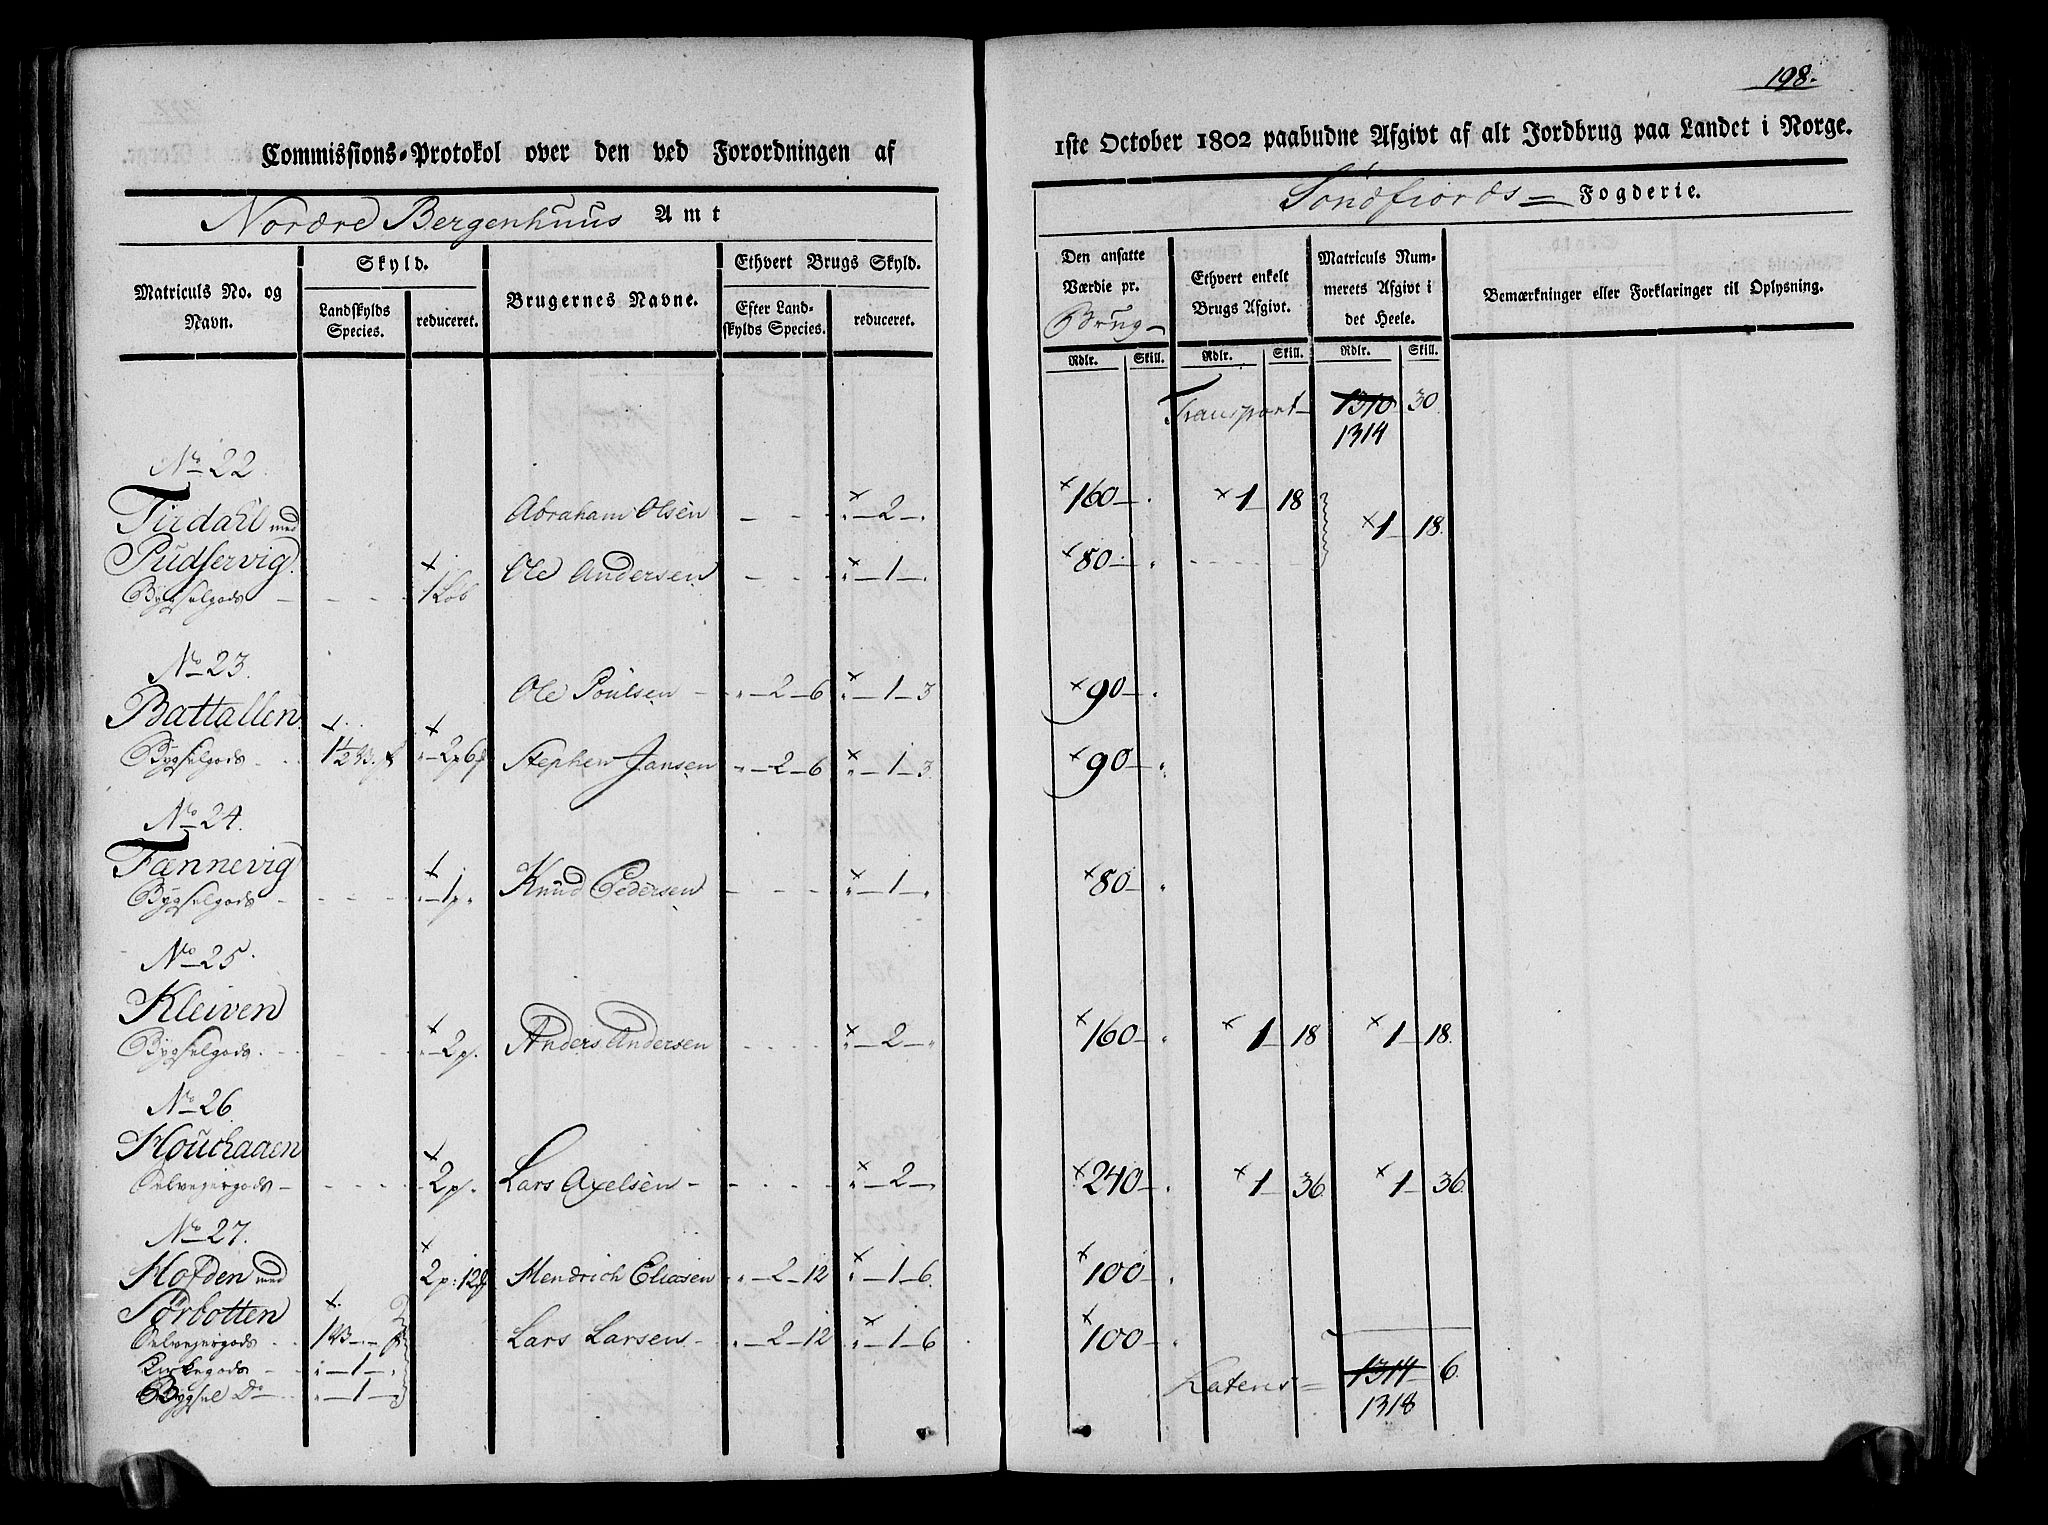 198.
Commissions-Protokol over den ved Forordningen af
1ste October 1802 paabudne Afgivt af alt Jordbrug paa Landet i Norge.
Nordre Bergenhuus Amt
Søndfiords Fogderie.
Matriculs No. og Navn.
Skyld.
Landskylds Species.
reduceret.
Brugernes Navne.
Ethvert Brugs Skyld.
Efter Landskylds Species.
reduceret.
Den ansatte Værdie pr. Brug
Ethvert enkelt Brugs Afgivt.
Matriculs Nummerets Afgivt i det Heele.
Bemærkninger eller Forklaringer til Oplysning.
Rdlr. Skill. Rdlr. Skill. Rdlr. Skill.
Transport 1310 30
1314
No 22.
Tirdahl med Abraham Olsen - - - 2 - 160 - 1 - 18 1 - 18
Pudservig. Ole Andersen - - - 1 - 80 -
Bygselgods - - - 1 Løb
No 23.
Battallen Ole Poulsen - 2 - 6 - 1 - 3 90 -
Bygselgods 1 1/2 - 2p 6 Stephen Jansen - 2 - 6 - 1 - 3 90 -
No 24.
Fannevig
Bygselgods - - - 1p Knud Pedersen - - - 1 - 80 -
No 25.
Kleiven
Bygselgods - - - 2p. Anders Andersen - - - 2 - 160 - 1 - 18 1 - 18.
No 26
Houchaaen
Selvejergods - - - 2p. Lars Axelsen - - - 2 - 240 - 1 - 36 1 - 36.
No 27.
Hofden med 2p: 12 Hendrich Eliasen - 2 - 12 - 1 - 6. 100 -
Sørbotten
Selvejergods 1 Lars Larsen - 2 - 12 - 1 - 6 100 -
Kirkegods - 1 -
Bygsel Do - 1 -
Latens 1314 6.
1318